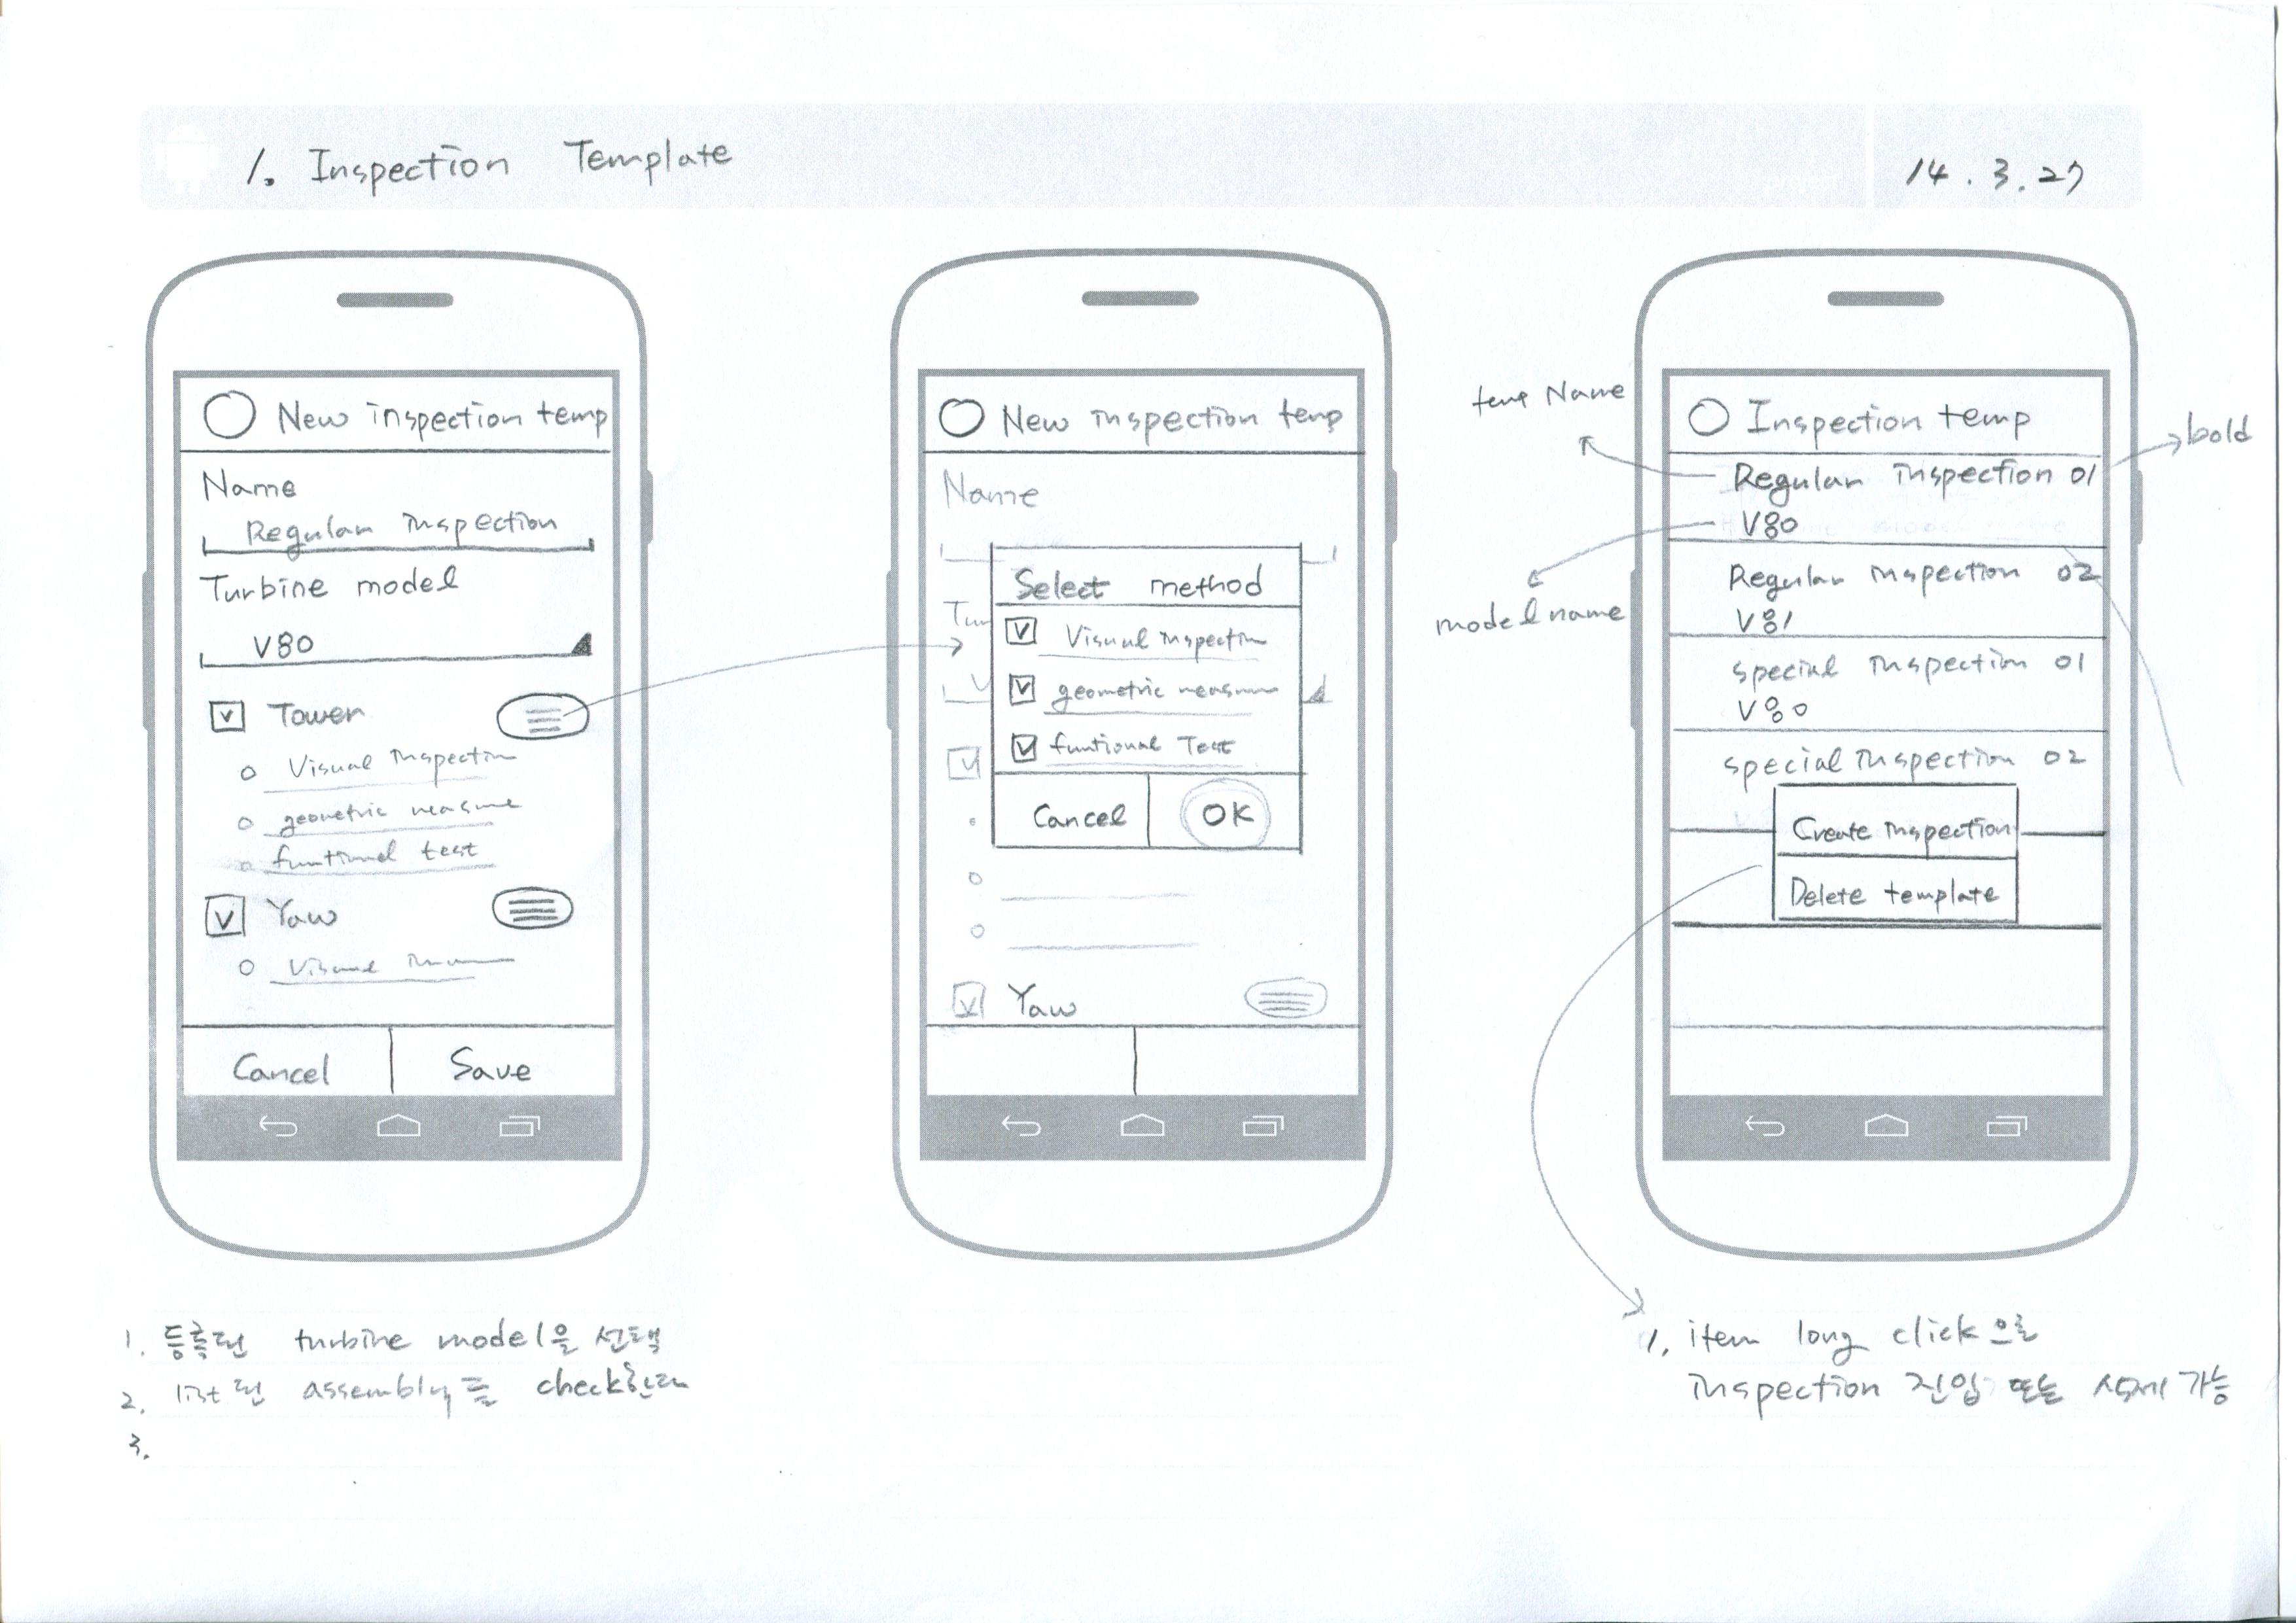 1. Inspection Template
14.3.27
New inspection temp
Name
Regular inspection
Turbine model
V80
Tower
Visual inspection
geometric measure
funtional test
Yaw
Visual
Cancel
Save
1. 등록된 turbine model을 선택
2. list된 assembly를 check한다
3.
New inspection temp
Name
Tur
V
Select method
Visual inspection
geometric measure
funtional Test
Cancel
OK
Yaw
temp Name
model name
bold
Inspection temp
Regular inspection 01
V80
Regular inspection 02
V81
special inspection 01
V80
special inspection 02
Create inspection
Delete template
1. item long click으로
inspection 진입 또는 삭제 가능